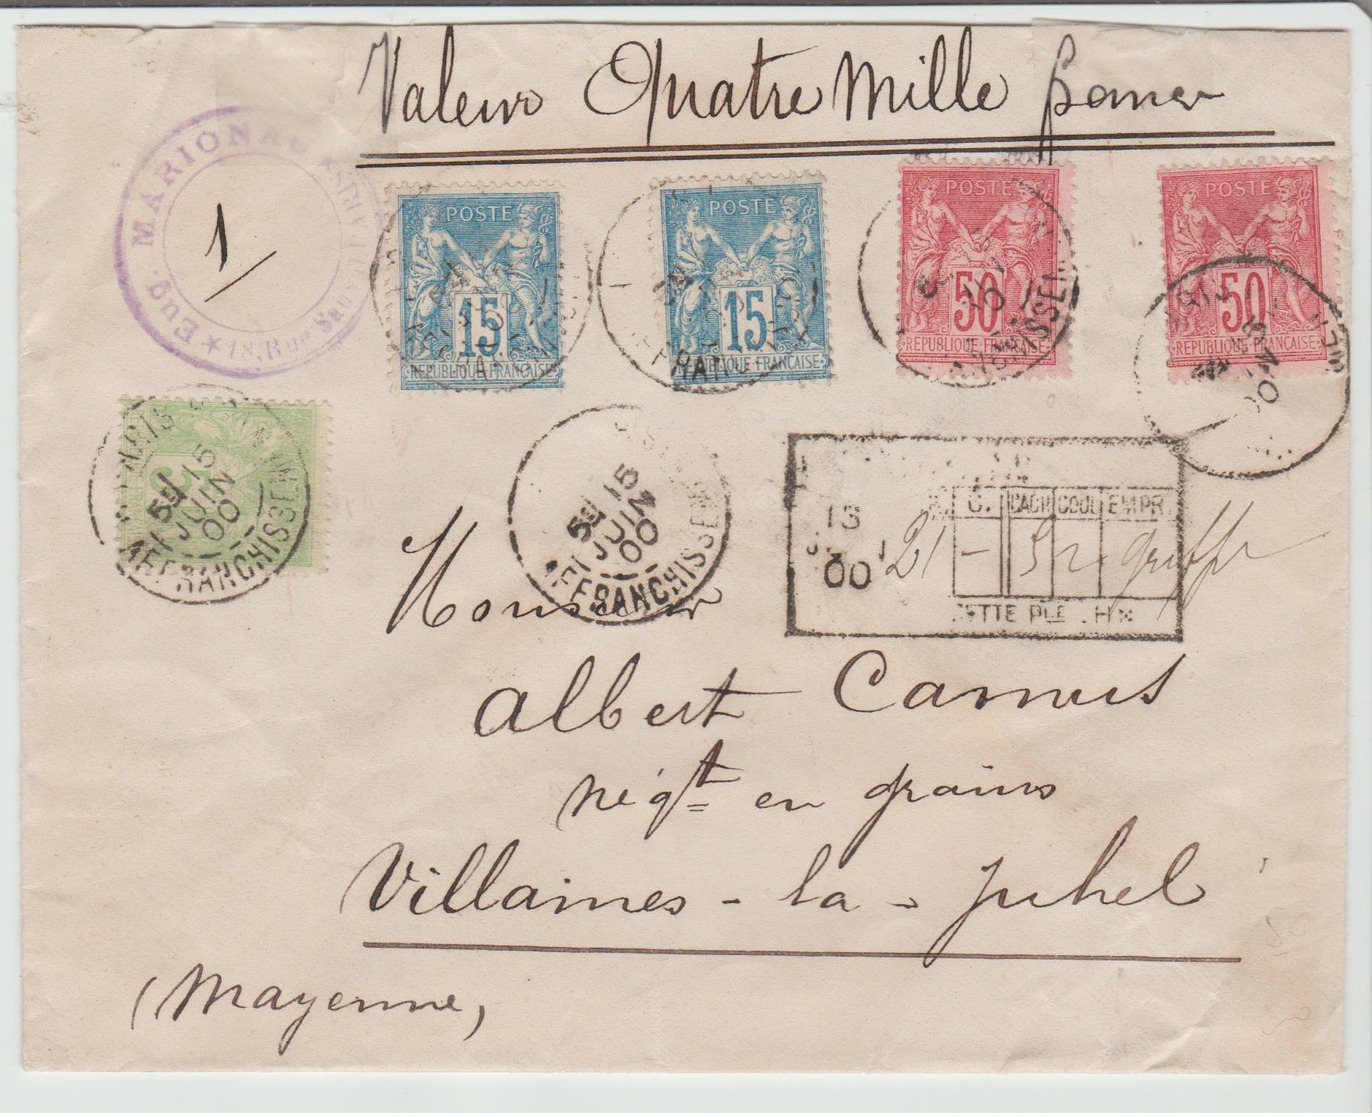 Valeur Quatre Mille francs
Eug. MARIONAU
★ 18, Rue S
1
POSTE
15
REPUBLIQUE FRANÇAISE
POSTE
15
REPUBLIQUE FRANÇAISE
POSTE
50
REPUBLIQUE FRANÇAISE
POSTE
50
REPUBLIQUE FRANÇAISE
5
PARIS
5E 15
JUIN
00
AFFRANCHISSEM
5E 15
JUIN
00
AFFRANCHISSEM
C. CACH COUL EMPR.
00
21 -
Monsieur
Albert Camus
négt en grains
Villaines-la-Juhel
(Mayenne)